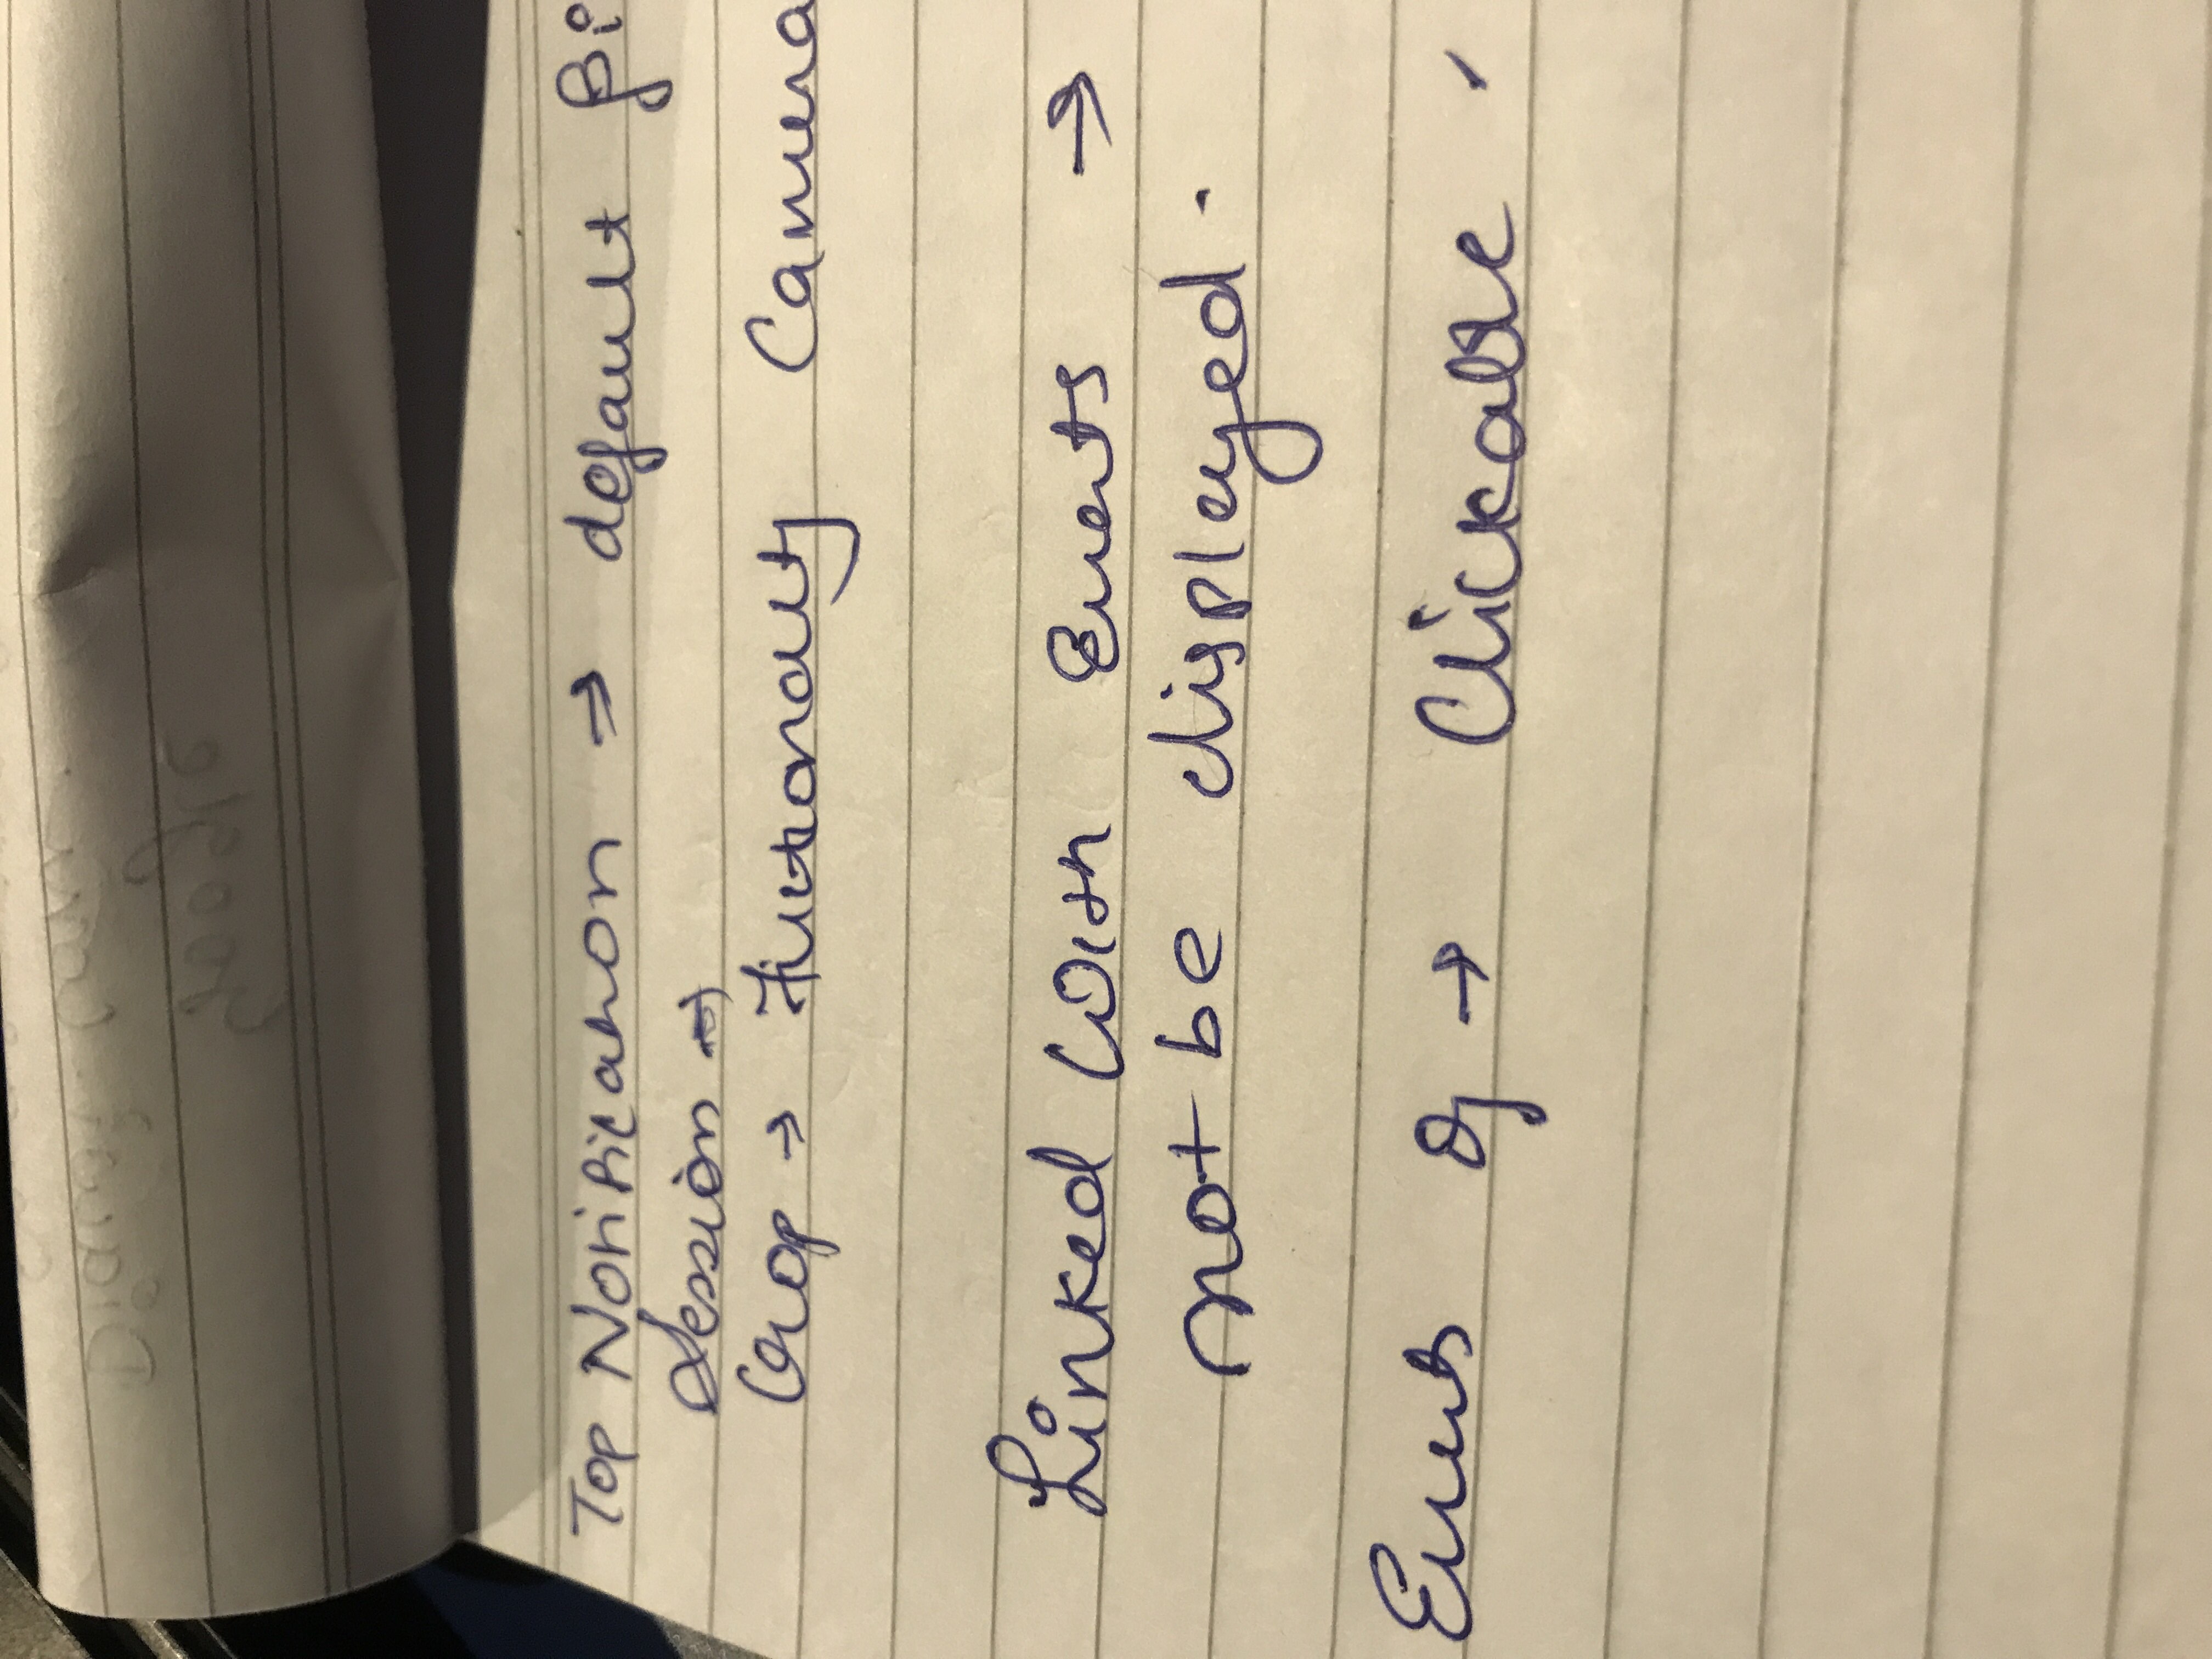 Top Notification → default
Session →
Crop → Fuctionality Camera
Linked with Events →
not be displayed.
Events of → Clickable